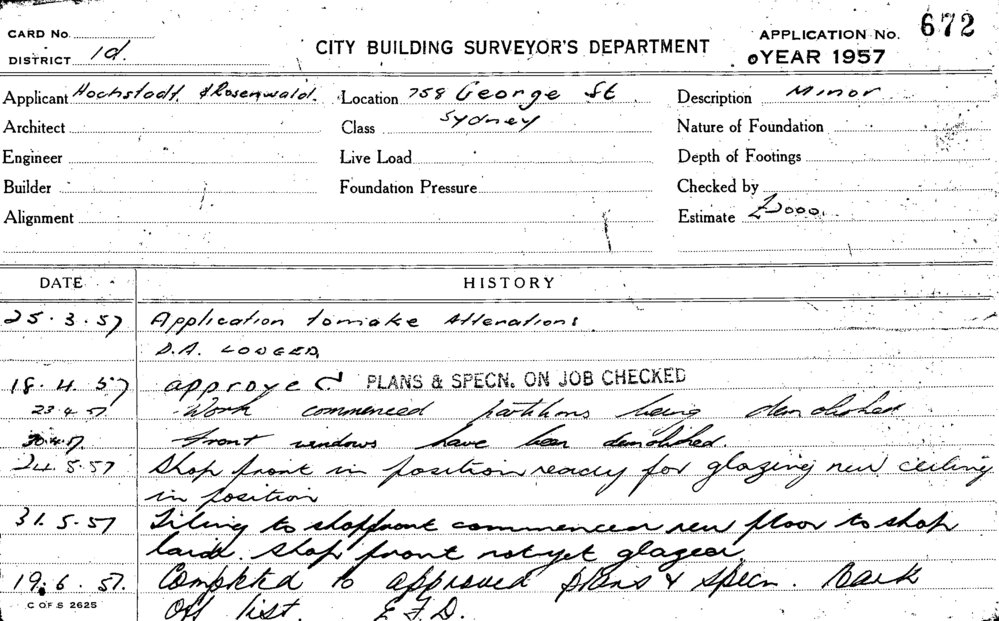 CARD No.
DISTRICT 1d.
CITY BUILDING SURVEYOR'S DEPARTMENT
APPLICATION No. 672
YEAR 1957
Applicant Hochstadt & Rosenwald. Location 758 George St Description Minor
Architect Class Sydney Nature of Foundation
Engineer Live Load Depth of Footings
Builder Foundation Pressure Checked by
Alignment Estimate £2000.
DATE HISTORY
25.3.57 Application to make Alterations
D.A. LODGED
18.4.57 approved PLANS & SPECN. ON JOB CHECKED
23.4.57 Work commenced partitions being demolished
30.4.57 Front windows have been demolished
24.5.57 Shop front in position ready for glazing new ceiling
in position
31.5.57 Tiling to shopfront commenced new floor to shop
laid. Shop front not yet glazed
19.6.57. Completed to approved plans & specn. Mark
Off list. E.F.D.
C OF S 2625